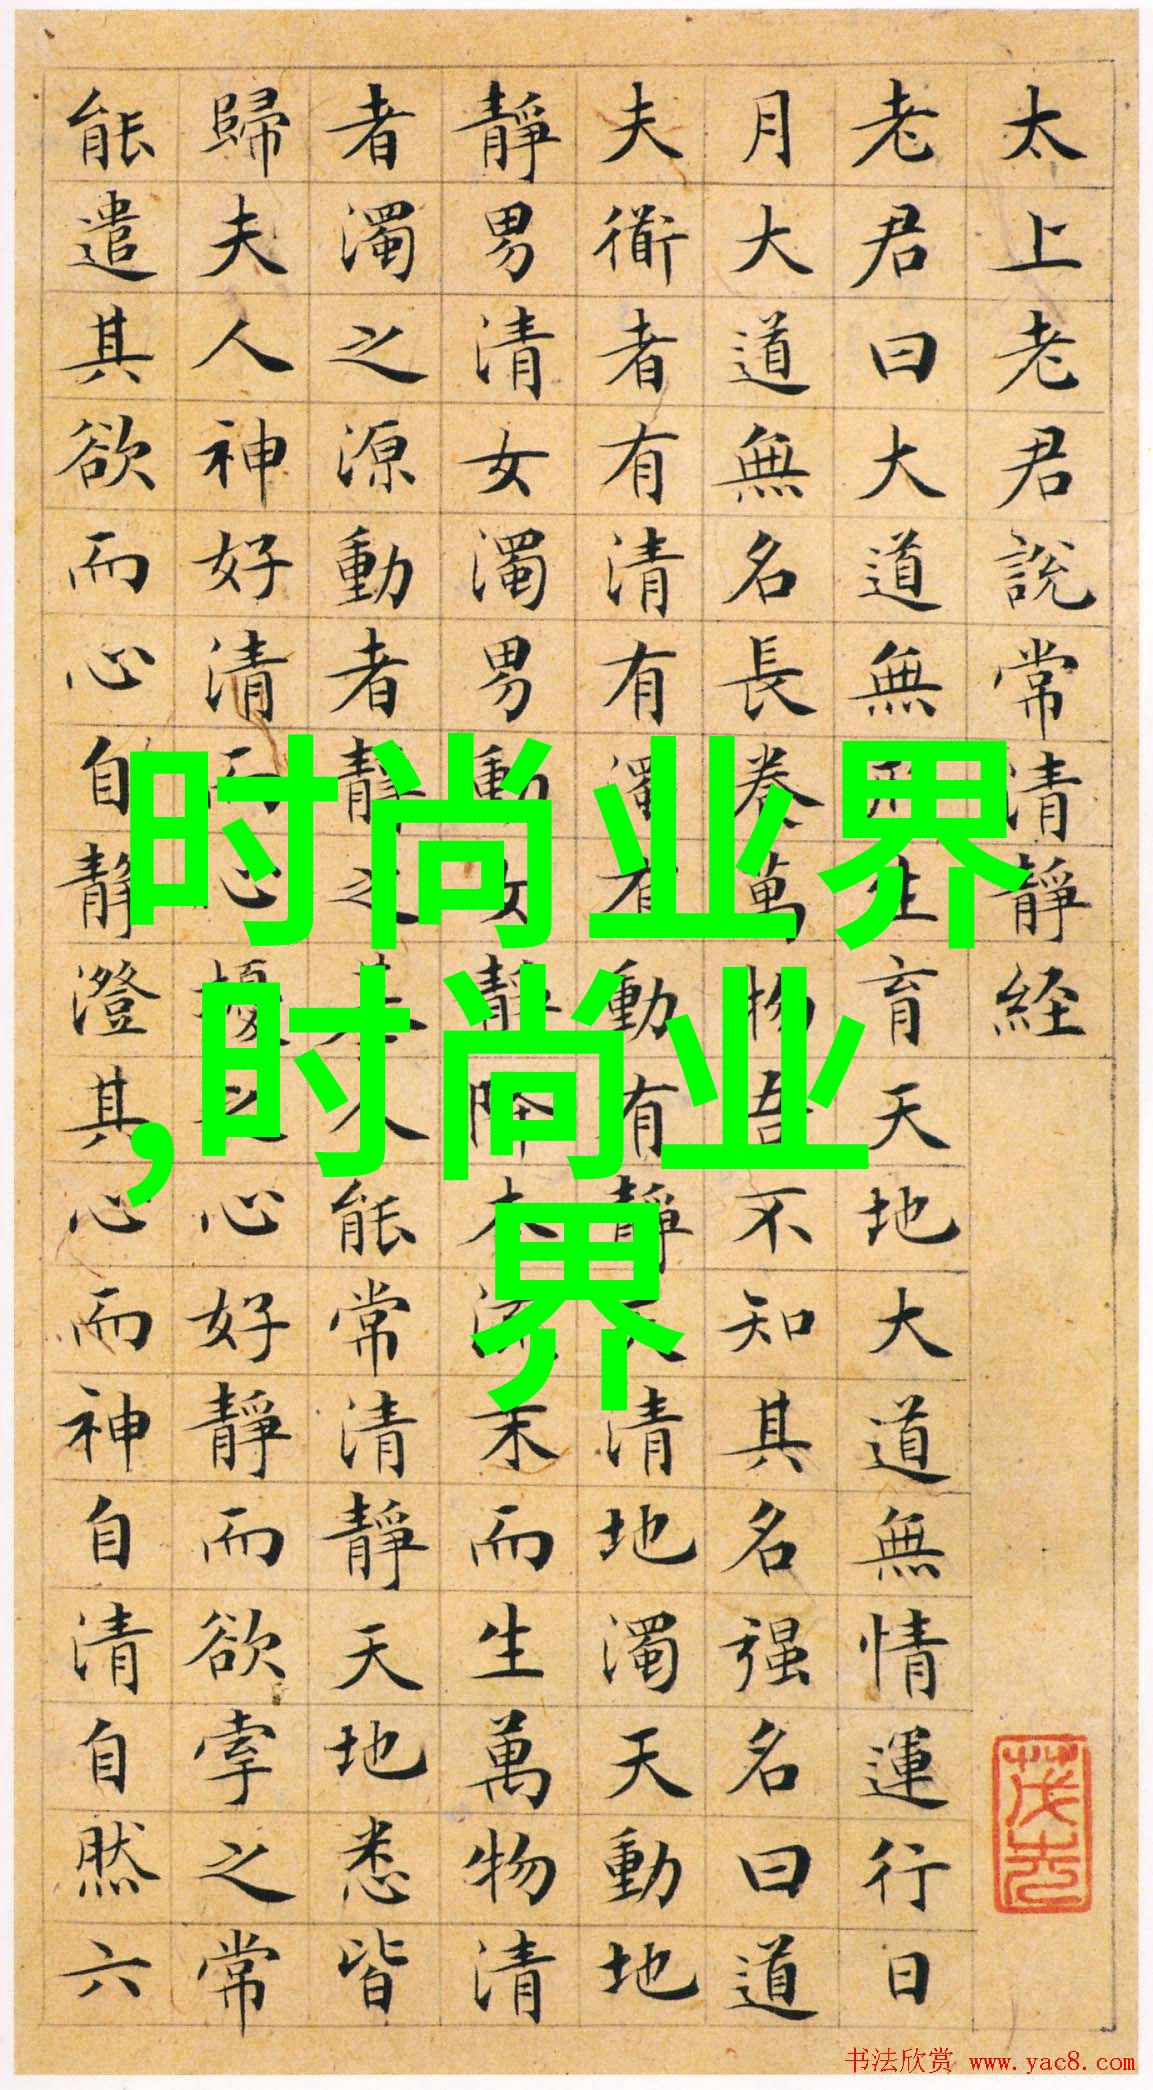 太上老君說常清靜経
老君曰大道無形生育天地大道無情運行日
月大道無名長養萬物吾不知其名强名曰道
夫衜者有清有濁有動有靜天清地濁天動地
靜男清女濁男動女靜降本流末而生萬物清
者濁之源動者靜之基人能常清靜天地悉皆
歸夫人神好清而心擾之心好靜而欲牽之常
能遣其欲而心自靜澄其心而神自清自然六
时尚业界
,时尚业
界
书法欣赏 www.yac8.com